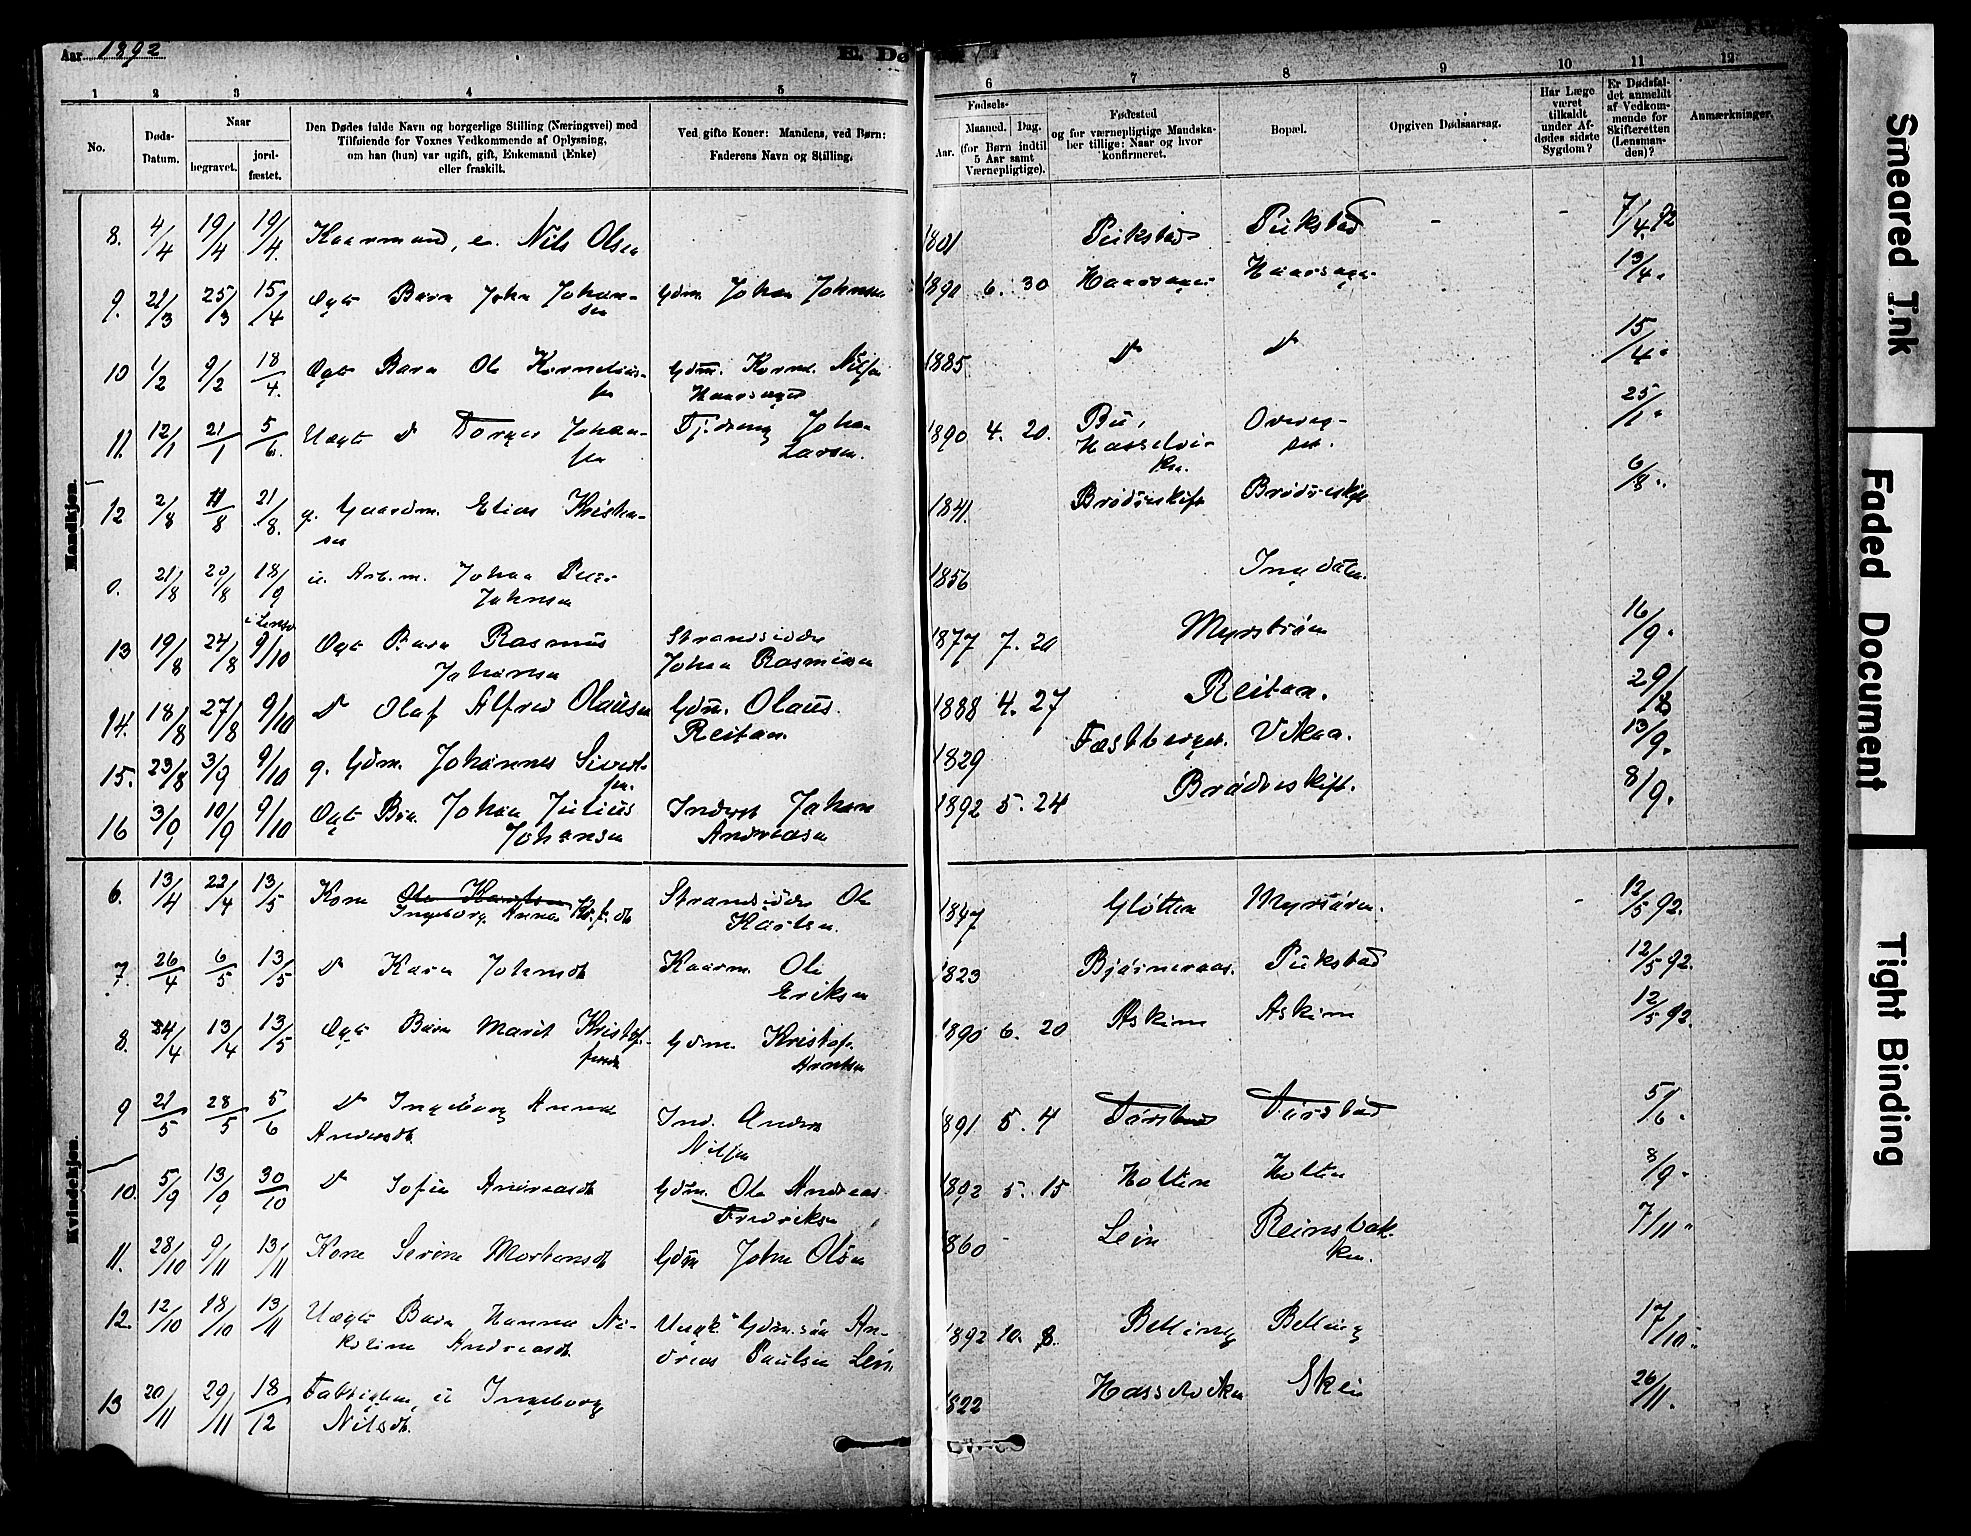 Aar 1892
E. Dø
1 2 3 4 5
6 7 8 9 10 11 12
No.
Døds-
Datum.
Naar
begravet.
jord-
fæstet.
Den Dødes fulde Navn og borgerlige Stilling (Næringsvei) med
Tilføiende for Voxnes Vedkommende af Oplysning,
om han (hun) var ugift, gift, Enkemand (Enke)
eller fraskilt.
Ved gifte Koner: Mandens, ved Børn:
Faderens Navn og Stilling.
Fødsels-
Aar.
Maaned. Dag.
(for Børn indtil
5 Aar samt
Værnepligtige).
Fødested
og for værnepligtige Mandska-
ber tillige: Naar og hvor
konfirmeret.
Bopæl.
Opgiven Dødsaarsag.
Har Læge
været
tilkaldt
under Af-
dødes sidste
Sygdom?
Er Dødsfal-
det anmeldt
af Vedkom-
mende for
Skifteretten
(Lensman-
den)?
Anmærkninger.
Mandkjøn.
8. 4/4 19/4 19/4. Kaarmand, e. Nils Olsen 1801 Pukstad Pukstad - - 7/4 92
9. 21/3 25/3 15/4 Ægte Barn John Johan- Gdm. Johan Johnsen 1891 6. 30 13/4.
sen
10 1/2 9/2 18/4. Ægte Barn Ole Kornelius- Gdm. Korne. Nilsen 1885 D D 15/4.
sen
11. 12/1 21/1 5/6. Uægte D Torger Johan- Johan 1890 4. 20. 25/1.
sen Larsen. Hasselvi-
ken.
12 2/8 11/8 21/8. g. Gaardm. Elias Kristia- 1841. Brødreskift Brødreskift 6/8.
sen
0. 21/8 18/9 u. Arb.m. Johan Peter 1856
Johnsen
13 19/8 24/8 9/10 Ægte Barn Rasmus 1877 7. 20 16/9.
Johansen Johan Rasmussen
14. 18/8 27/8 9/10 D Olaf Alfred Olausen Gdm. Olaus 1888 4. 27 Reitan. 29/8
Reitan.
15. 23/8 3/9 9/10 g. Gdm. Johannes Sivert- 1829 13/9.
sen.
16 3/9 10/9 9/10 Ægte Bn. Johan Julius Inderst Johan 1892 5. 24 Brødreskift. 8/9.
Johansen Andreasen
Kvindekjøn.
6. 13/4 22/4 13/5 Kone Strandsidder Ole 1847 - 12/5 92.
Ingeborg Anna
7. 26/4 6/5 13/5 D Karen Johnsdt Kaarm. Ole 1823 Pukstad 12/5 92.
Eriksen
8. 13/4 13/5 Ægte Barn Marit Kristof- Gdm. Kristof. 1890 6. 20 Askim Askim 12/5 92.
fersdt Arntsen
9 21/5 28/5 5/6 D Ingeborg Anna Ind. Anders 1891 5. 4 5/6.
Andersdt Nilsen
10. 5/9 13/9 30/10 D Sofie Andreasdt Gdm. Ole Andreas 1892 5. 15 Holten Holten 8/9.
Fredriksen
11. 28/10 9/11 13/11 Kone Serine Mortensdt Gdm John Olsen 1860 Lein Reinsbak- 7/11.
ken.
12. 12/10 18/10 13/11 Uægte Barn Hanna Ni- Ungk. Gdm.søn An- 1892 10. 8. Belling Belling 17/10.
koline Andreasdt. dreas Paulsen Lein
13 20/11 29/11 18/12 Fattiglem, u Ingeborg 1822 Hasselviken Skei 26/11.
Nilsdt.
Smeared Ink
Faded Document
Tight Binding